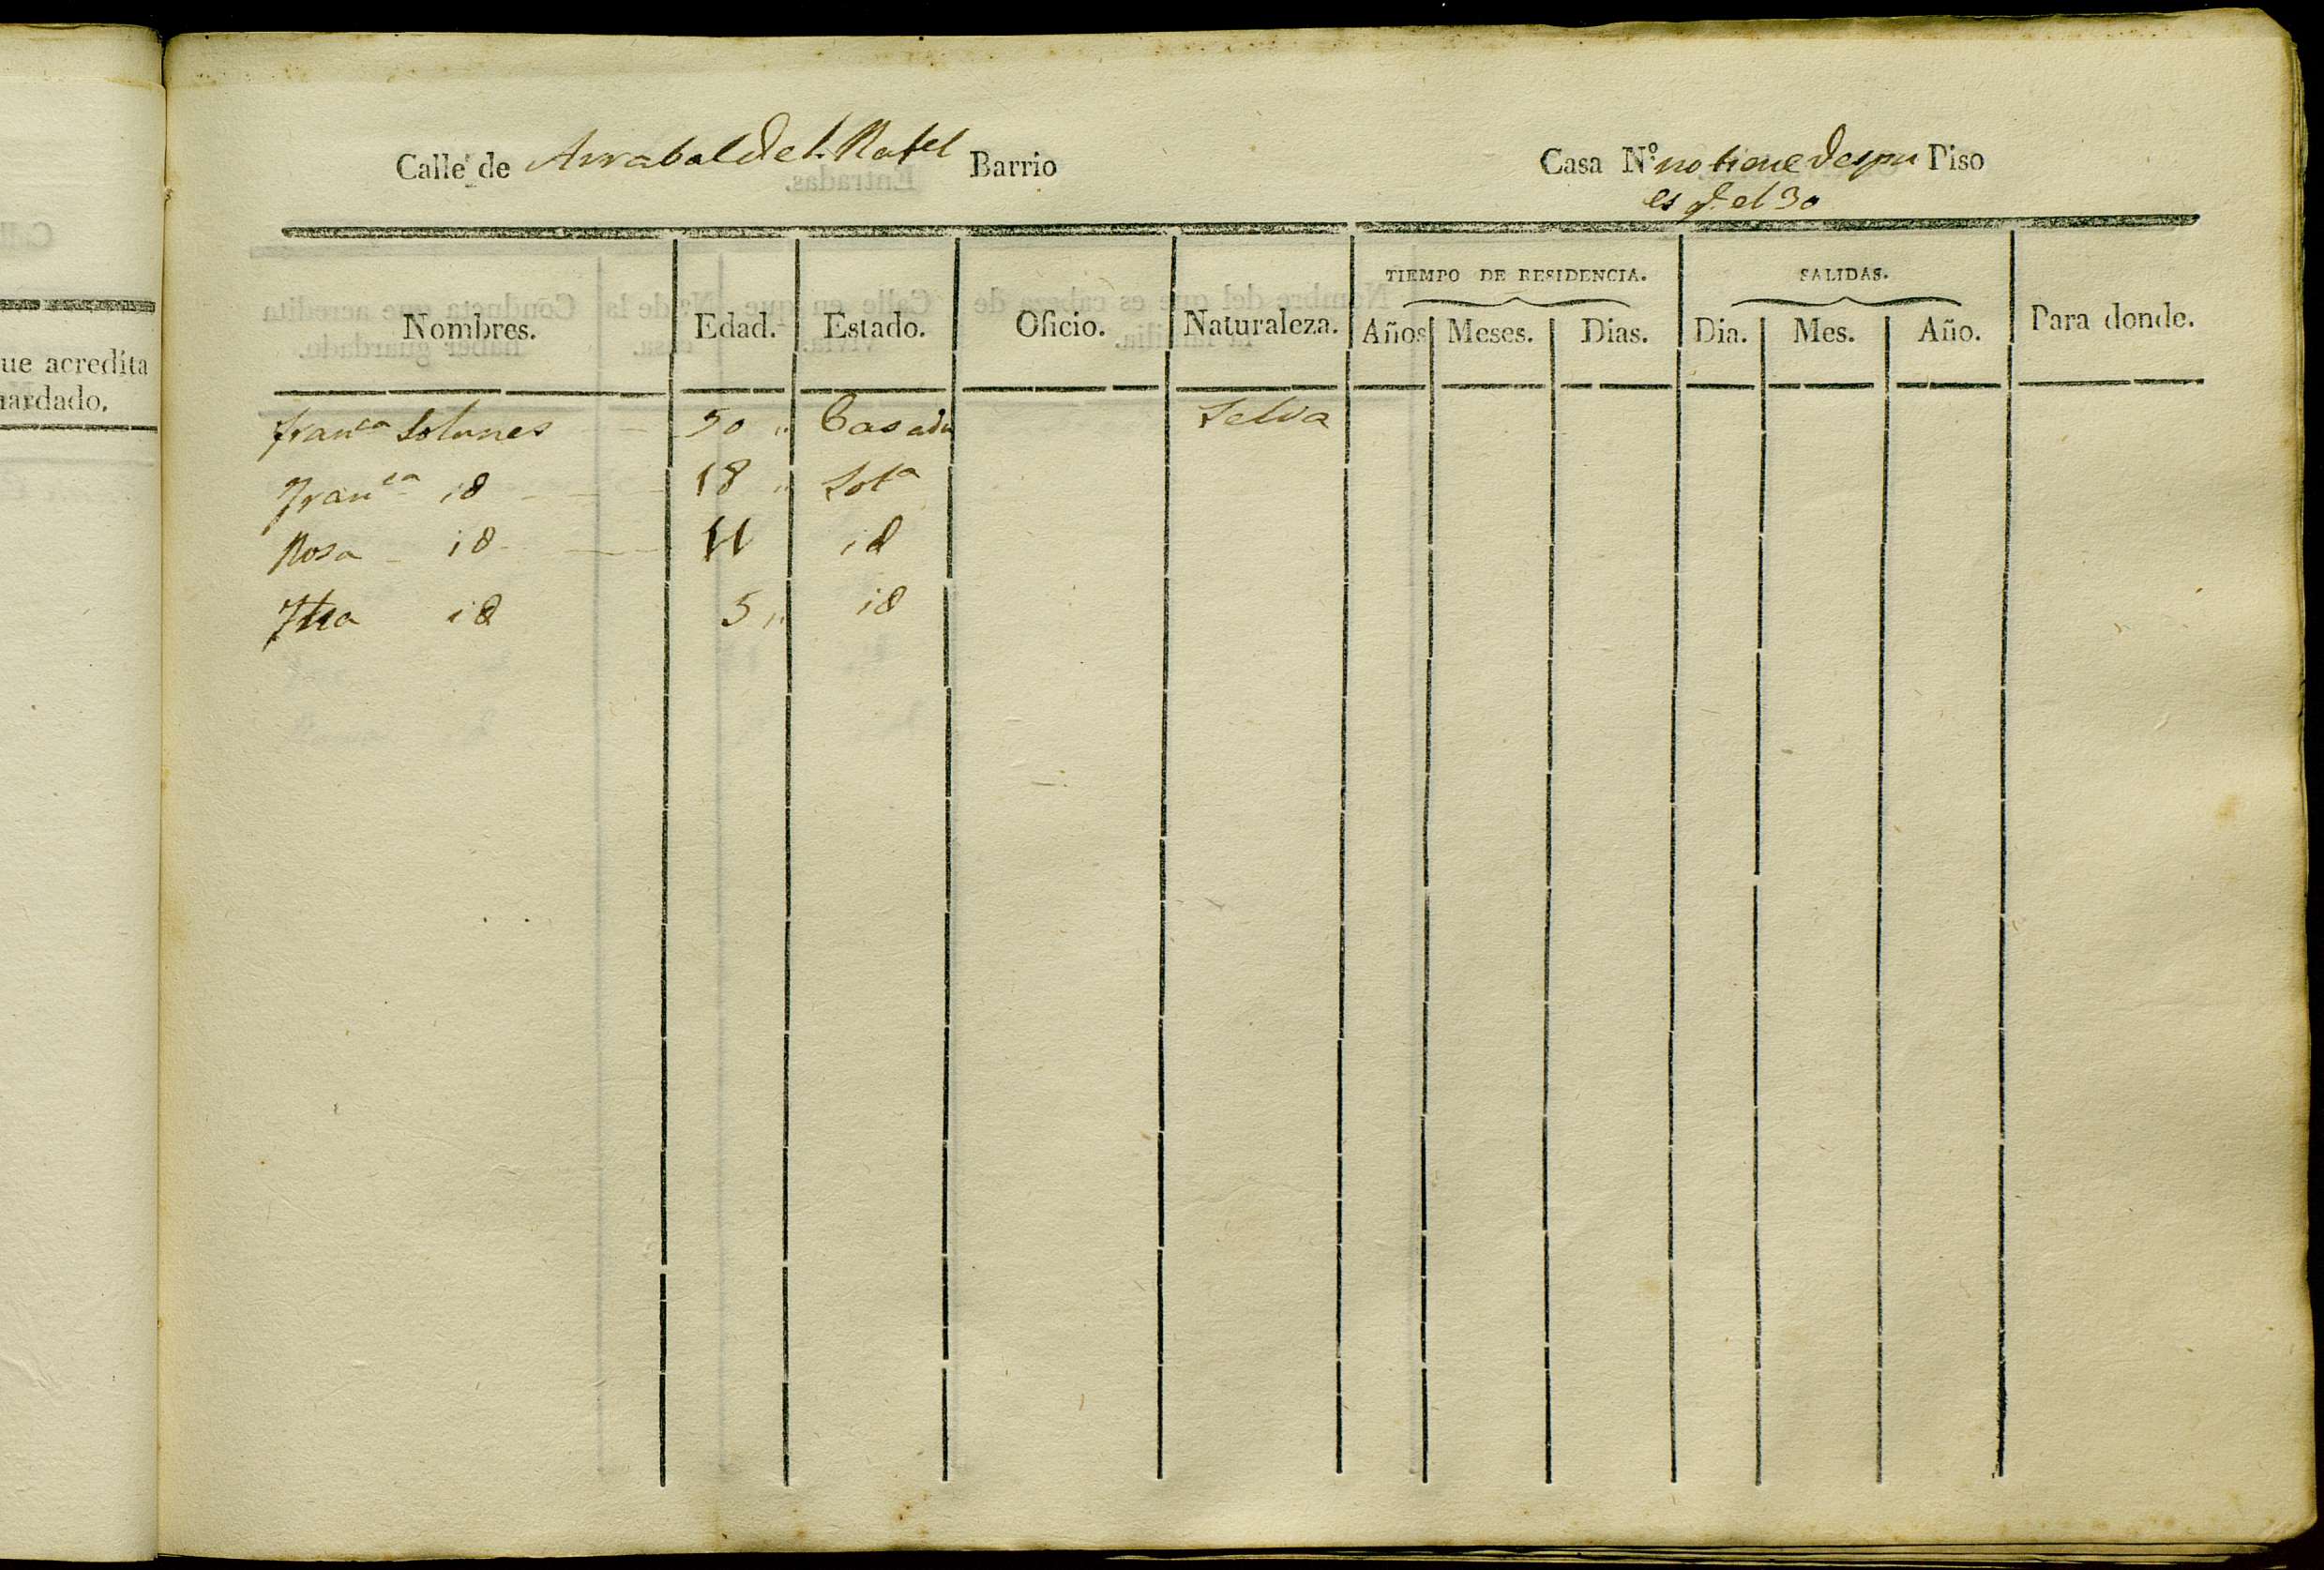 Calle de Arrabal del Rafel Barrio Casa Nº no tiene despu Piso
es qe el 30
TIEMPO DE RESIDENCIA. SALIDAS.
Nombres. Edad. Estado. Oficio. Naturaleza. Años Meses. Dias. Dia. Mes. Año. Para donde.
ue acredita
ardado.
Franca Solanes 50 Casada Selva
Franca id 18 Solª
Rosa id 11 id
id 5 id